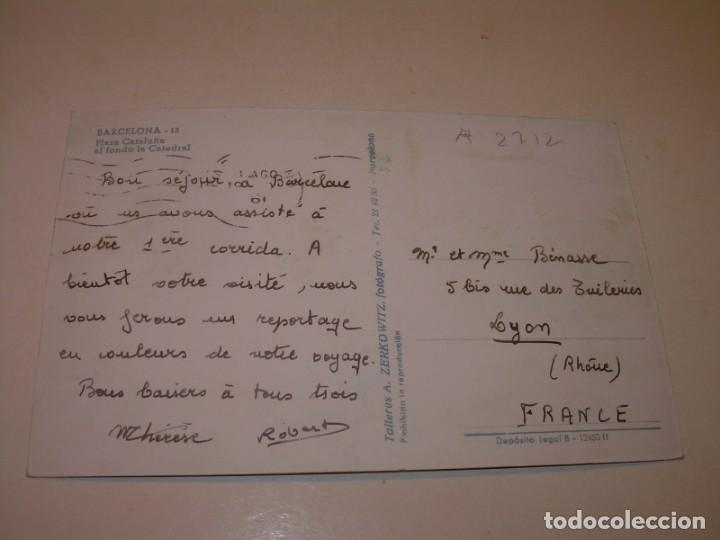 BARCELONA - 12
Plaza Cataluña
al fondo la Catedral
Bon séjour à Barcelone
où ns avons assisté à
notre 1ère corrida. A
bientot votre visite, nous
vous ferons un reportage
en couleurs de notre voyage.
Bons baisers à tous trois
MThérèse Robert
Talleres A. ZERKOWITZ, fotógrafo - Tel. - Barcelona
Prohibida la reproducción
A 2712
Mr et Mme Bénasse
5 bis rue des Tuileries
Lyon
(Rhône)
FRANCE
Depósito Legal B - 12453
todocoleccion
todocoleccion.net